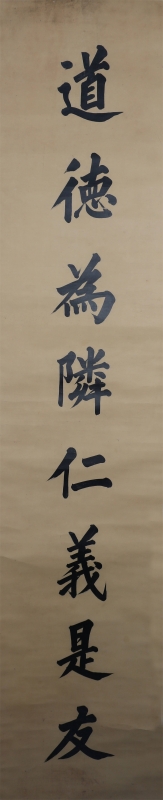 道德為隣仁義是友